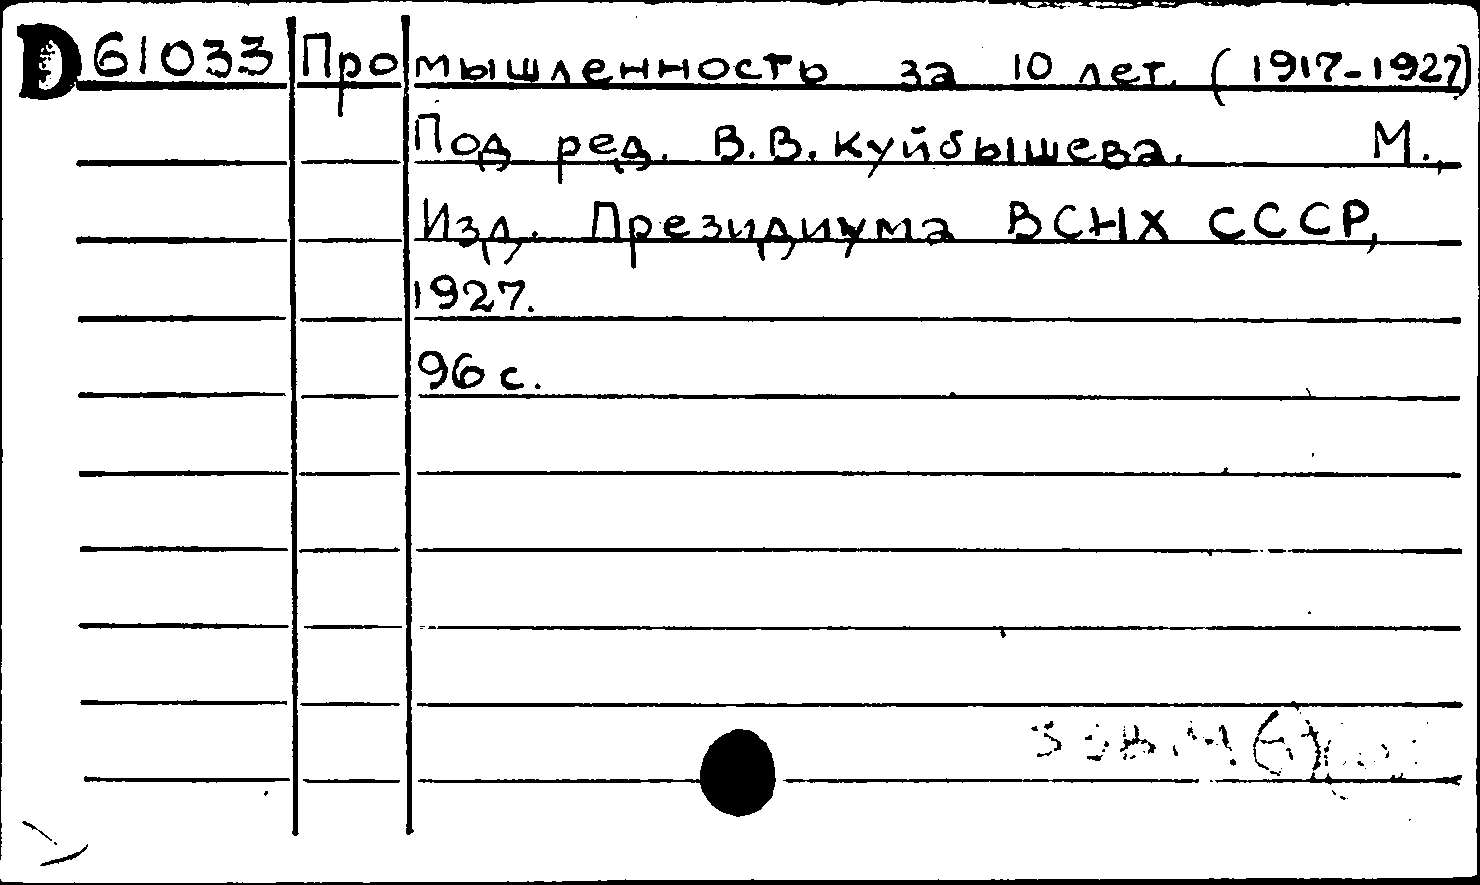 D 61033 Промышленность за 10 лет. (1917-1927)
Под ред. В.В. Куйбышева. М.,
Изд. Президиума ВСНХ СССР,
1927.
96 с.